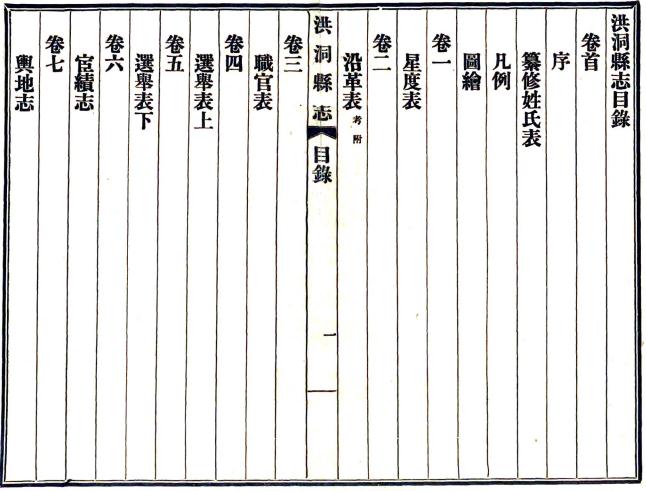 洪洞縣志目錄
卷首
序
纂修姓氏表
凡例
圖繪
卷一
星度表
卷二
沿革表 考附
洪洞縣志 目錄 一
卷三
職官表
卷四
選舉表上
卷五
選舉表下
卷六
宦績志
卷七
輿地志